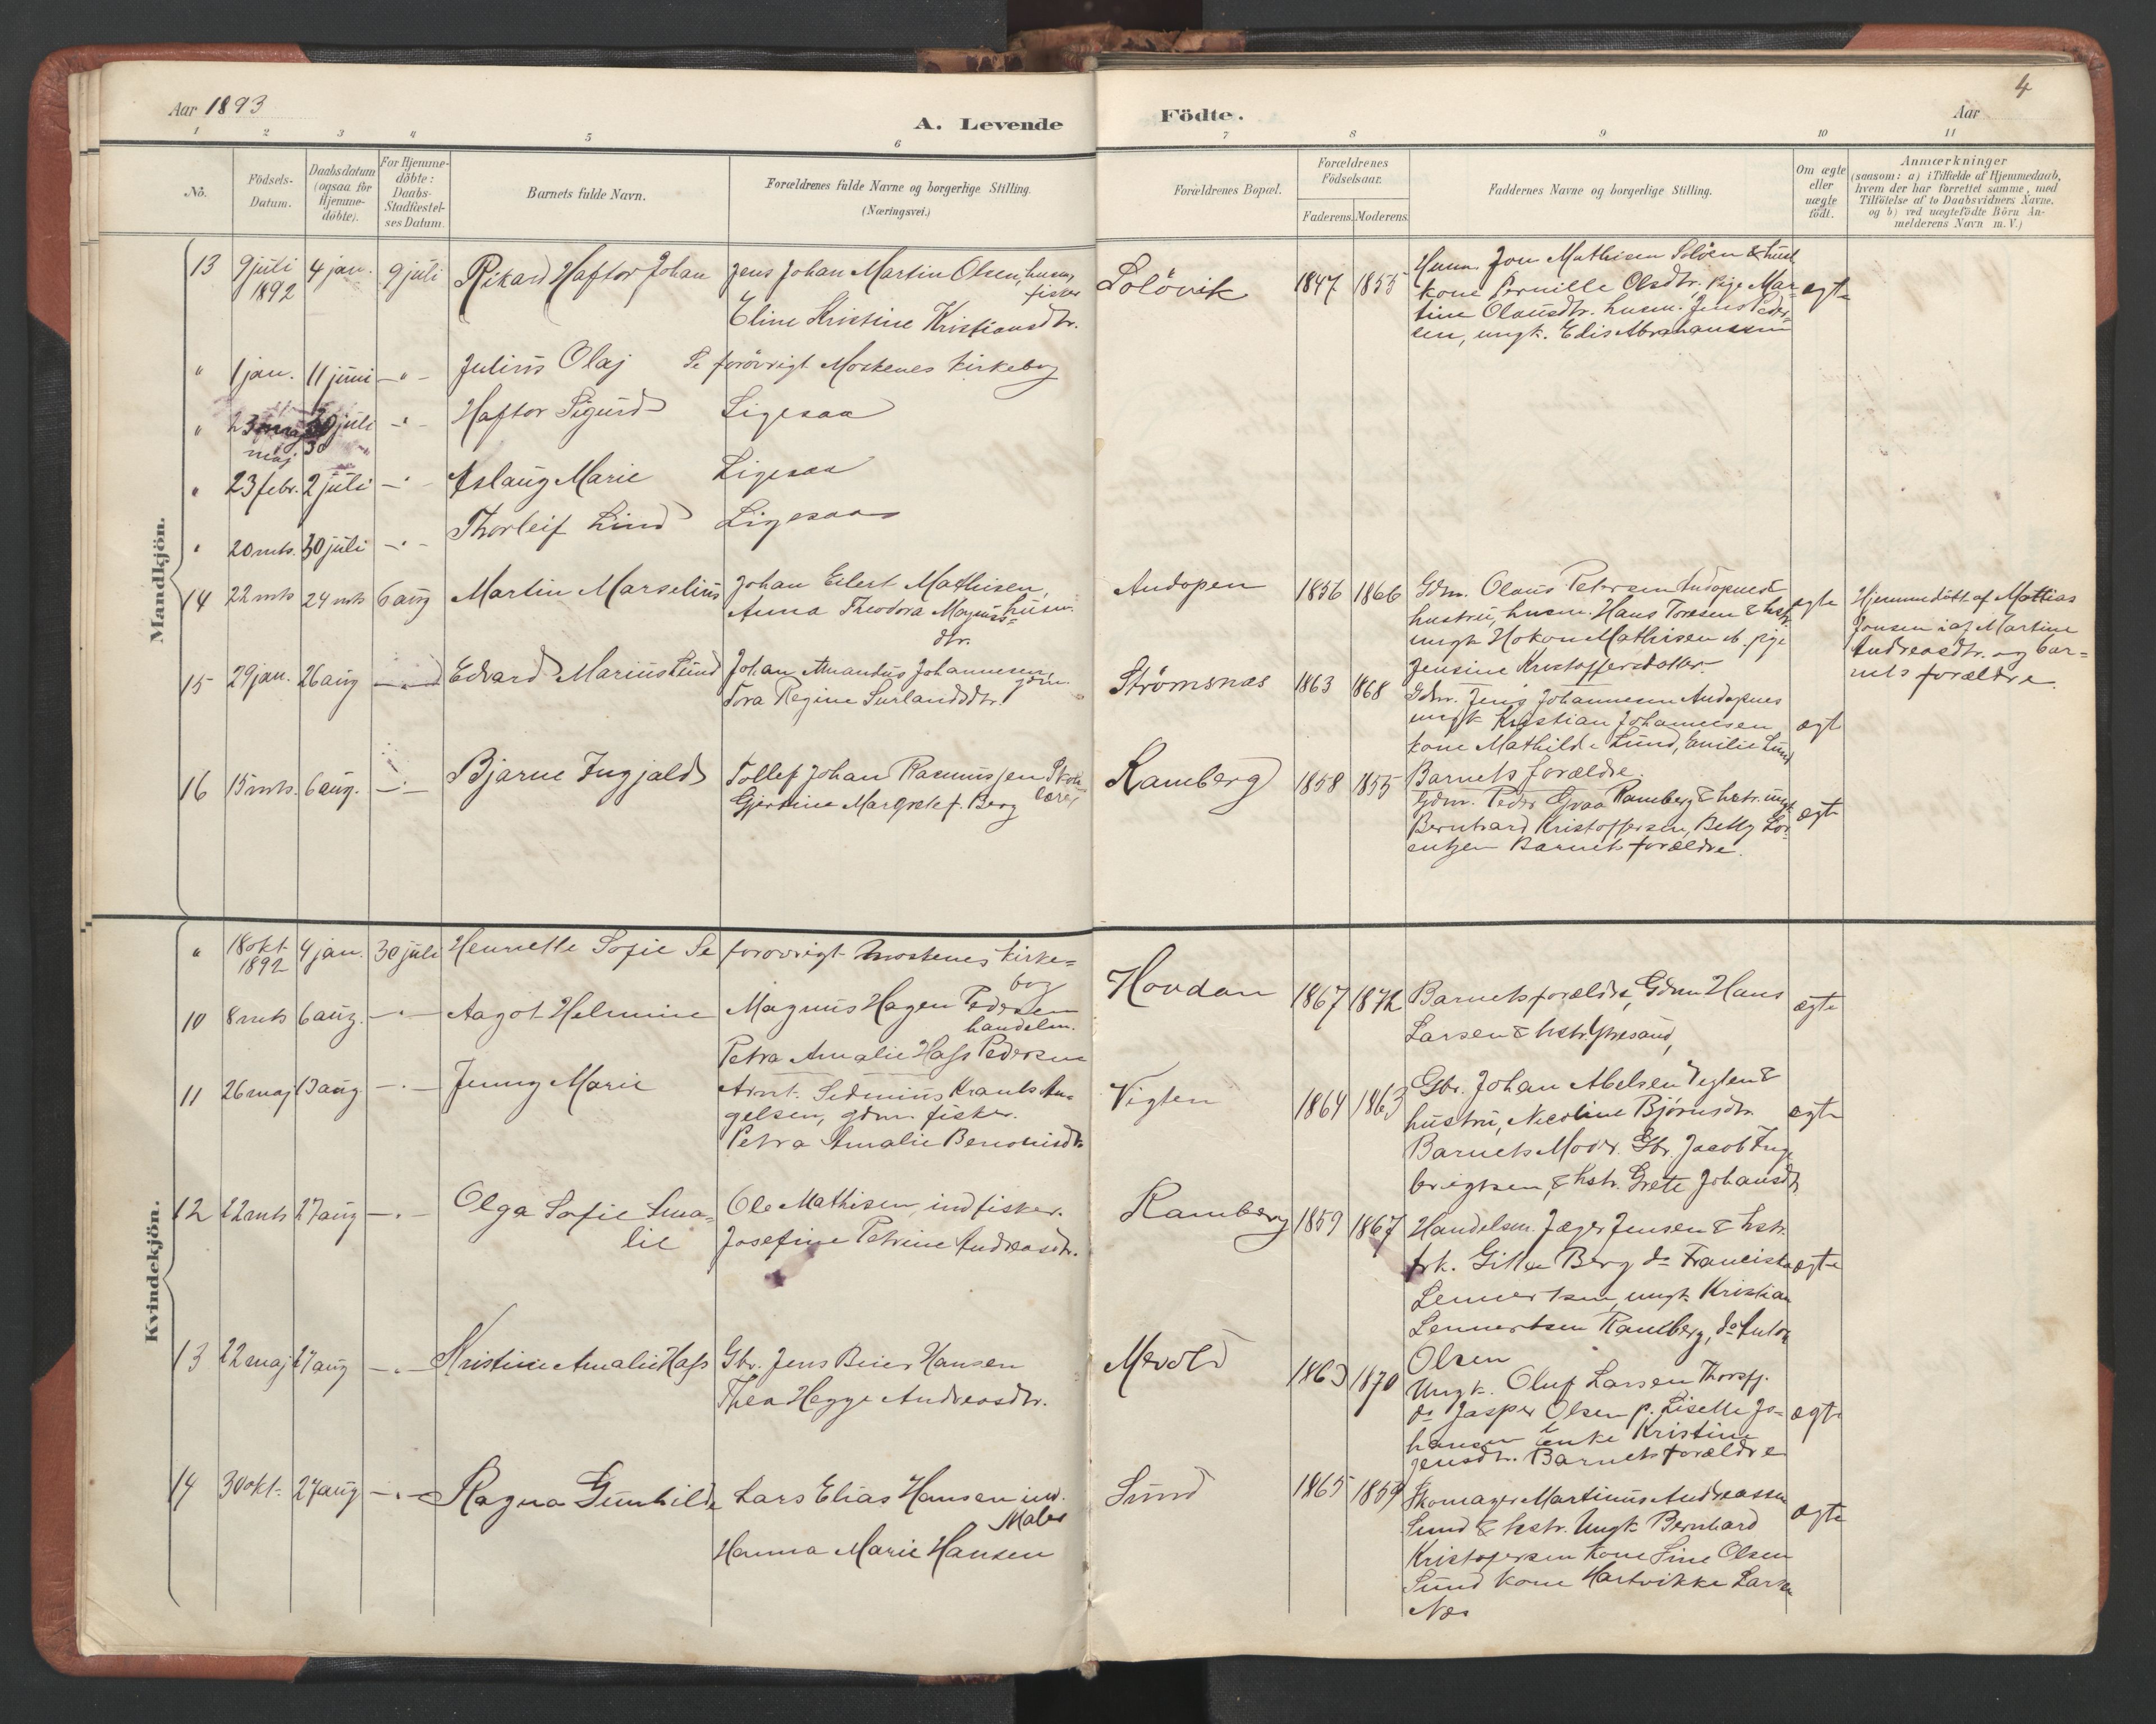 Aar 1893
A. Levende
Födte.
Aar
4
1 2 3 4 5 6 7 8 9 10 11
Nö.
Födsels-
Datum.
Daabsdatum
(ogsaa for
Hjemme-
döbte).
For Hjemme-
döbte:
Daabs-
Stadfæstel-
ses Datum.
Barnets fulde Navn.
Forældrenes fulde Navne og borgerlige Stilling.
(Næringsvei.)
Forældrenes Bopæl.
Forældrenes
Födselsaar.
Faderens. Moderens.
Faddernes Navne og borgerlige Stilling.
Om ægte
eller
uægte
födt.
Anmærkninger
(saasom: a) i Tilfælde af Hjemmedaab,
hvem der har forrettet samme, med
Tilföielse af to Daabsvidners Navne.
og b) ved uægtefödte Börn An-
melderens Navn m. V.)
Mandkjön.
13 9 juli 1892 4 jan. 9 juli Rikard Haftor Johan
Jens Johan Martin Olsen, husm,
fisker
Eline Kristine Kristiansdtr.
Solövik 1847 1855
Husm. Jon Mathisen Solöen & hust
kone Pernille Olsdtr. pige Mar-
tine Olausdtr. husm. Jens Peder-
sen, ungk. Edis Abrahamssen
ægte
" 1 jan. 11 juni -"- Julius Olaj Se forövrigt Moskenes kirkebog
" 23 maj 30 juli -"- Haftor Sigurd Ligesaa
maj 30
" 23 febr. 2 juli -"- Aslaug Marie Ligesaa
" 20 mts. 30 juli -"- Thorleif Lind Ligesaa
14 22 mts 24 mts 6 aug Martin Marselius
Johan Eilert Mathisen,
husm.
Anna Theodora Magnus=
dtr.
Andopen 1856 1866
Gdm. Olaus Petersen Andopnes &
hustru, husm. Hans Toresen & hstr.
ungk Hokon Mathisen & pige
Jensine Kristoffersdatter
ægte
Hjemmedöbt af Mattias
Jonsen i af Martine
Andreasdtr. og bar=
nets forældre.
15 29 jan. 26 aug -"- Edvard Marius Lund
Johan Amandus Johannesen
gdm.
Tora Regine Surlandsdtr.
Strömsnæs 1863 1868
Gdm. Jens Johannesen Andopnes
ungk Kristian Johannesen
kone Mathilde Lund, Emilie Lund
Barnets forældre.
ægt
16 15 mts. 6 aug. -"- Bjarne Ingjald
Tollef Johan Rasmussen Skole
lærer
Gjertine Margrete f. Berg
Ramberg 1858 1855
Gdm. Peder Graa Ramberg & hstr. ungk
Bernhard Kristoffersen, Betty Lor-
entzen Barnets forældre.
ægte
Kvindekjön.
" 18 okt. 1892 4 jan. 30 juli Henriette Sofie Se forövrigt Moskenes kirke=
bog
10 8 mts 6 aug. -"- Aagot Helmine
Magnus Hagen Pedersen
handelm.
Petra Amalie Hass Pedersen
Hovdan 1867 1872
Barnets forældre, Gdm Hans
Larsen & hstr. Yresand,
ægte
11 26 maj 13 aug -"- Jenny Marie
Arnt Sedenius Krants An-
gelsen, gdm fisker.
Petra Amalie Benonisdtr
Vigten 1864 1863
Gbr. Johan Abelsen Vigten &
hustru, Nicoline Bjørnsdtr.
Barnets Moder. Gbr. Jacob Inge
brigtsen, & hstr. Grete Johansdtr
ægte
12 22 mts 27 aug -"- Olga Sofie Ama-
lie
Ole Mathisen, ind fisker.
Josefine Petrine Andreasdtr.
Ramberg 1859 1867
Handelsm. Jæger Jensen & hstr.
frk. Gitta Berg do Franciska
Lennertsen, ungk. Kristian
Lennertsen Ramberg, do Anton
Olsen
ægte
13 22 maj 27 aug -"- Kristine Amalie Hass
Gbr. Jens Beier Hansen
Thea Hegge Andreasdtr.
Mevold 1863 1870
Ungk. Oluf Larsen Thorsfj.
do Jasper Olsen p. Liselle Jo-
hansen Enke Kristine
Jensdtr. Barnets forældre
ægte
14 30 okt. 27 aug -"- Ragna Gunhilde
Lars Elias Hansen ind.
Maler
Hanna Marie Hansen
Sund 1865 1859
Skomager Martinus Andreassen
Sund & hstr. Ungk Bernhard
Kristofersen Kone Sine Olsen
Sund kone Hartvikke Larsen
Næs
ægte